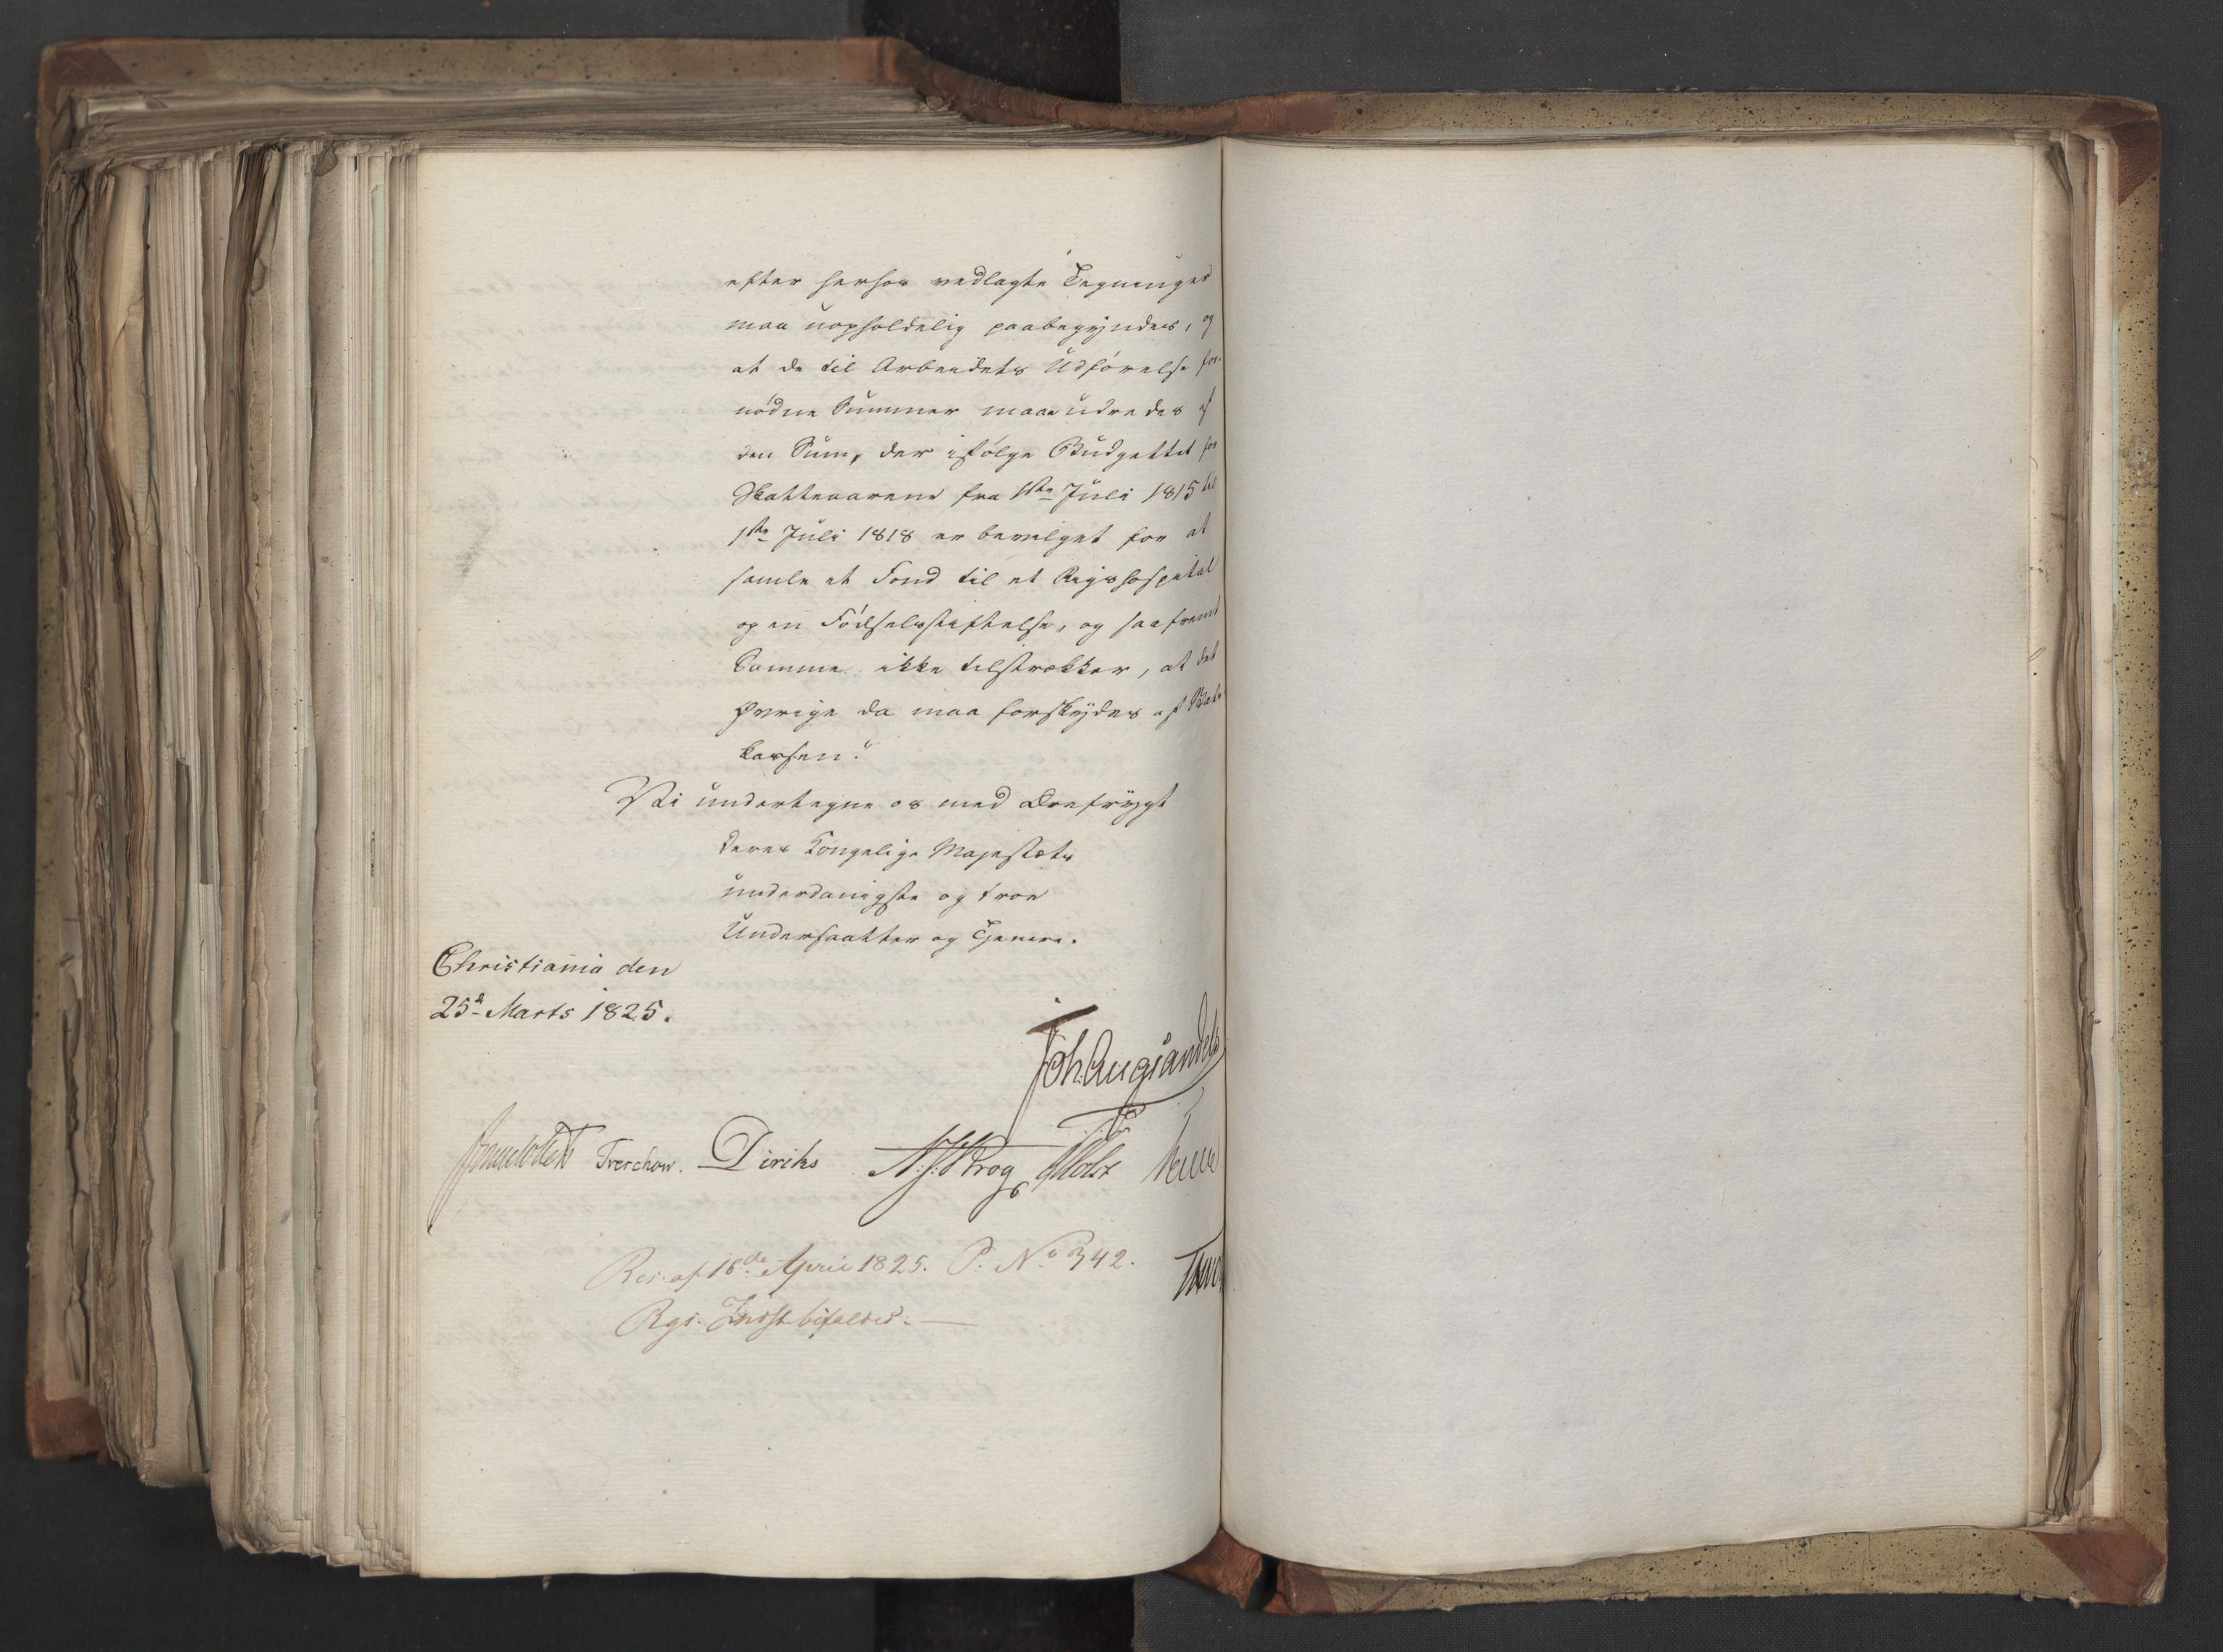 efter herhos vedlagte Tegninger
maa uopholdelig paabegyndes, og
at de til Arbeidets Udførelse for-
nødne Summer maa udredes af
den Sum, der ifølge Budgettet for
Skatteaarene fra 1ste Juli 1815 til
1ste Juli 1818 er bevilget for at
samle et Fond til et Rigshospital
og en Fødselsstiftelse, og saafremt
Samme ikke tilstrækker, at det
Øvrige da maa forskydes af Stats-
kassen."
Vi undertegne os med Ærefrygt
Deres Kongelige Majestæts
underdanigste og troe
Undersaatter og Tjenere.
Christiania den
25d Marts 1825.
Joh. Aug Sandels
Treschow. Diriks N. J. Krog P Holst
Res. af 16de April 1825. P. No 342.
Rgs. Indst bifaldes.—